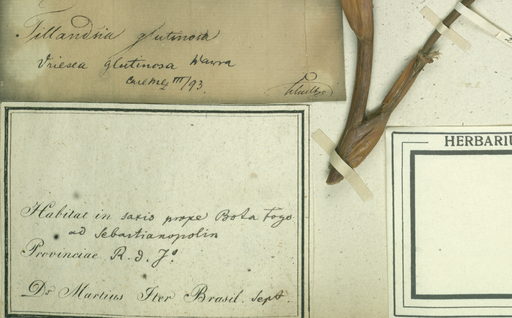 Tillandsia glutinosa
Vriesea glutinosa Wawra
III/93.
Habitat in saxis prope Bota Fogo
ad Sebastianopolin
Provinciae R. d. Jº
Dr Martius Iter Brasil. Sept.
HERBARIU